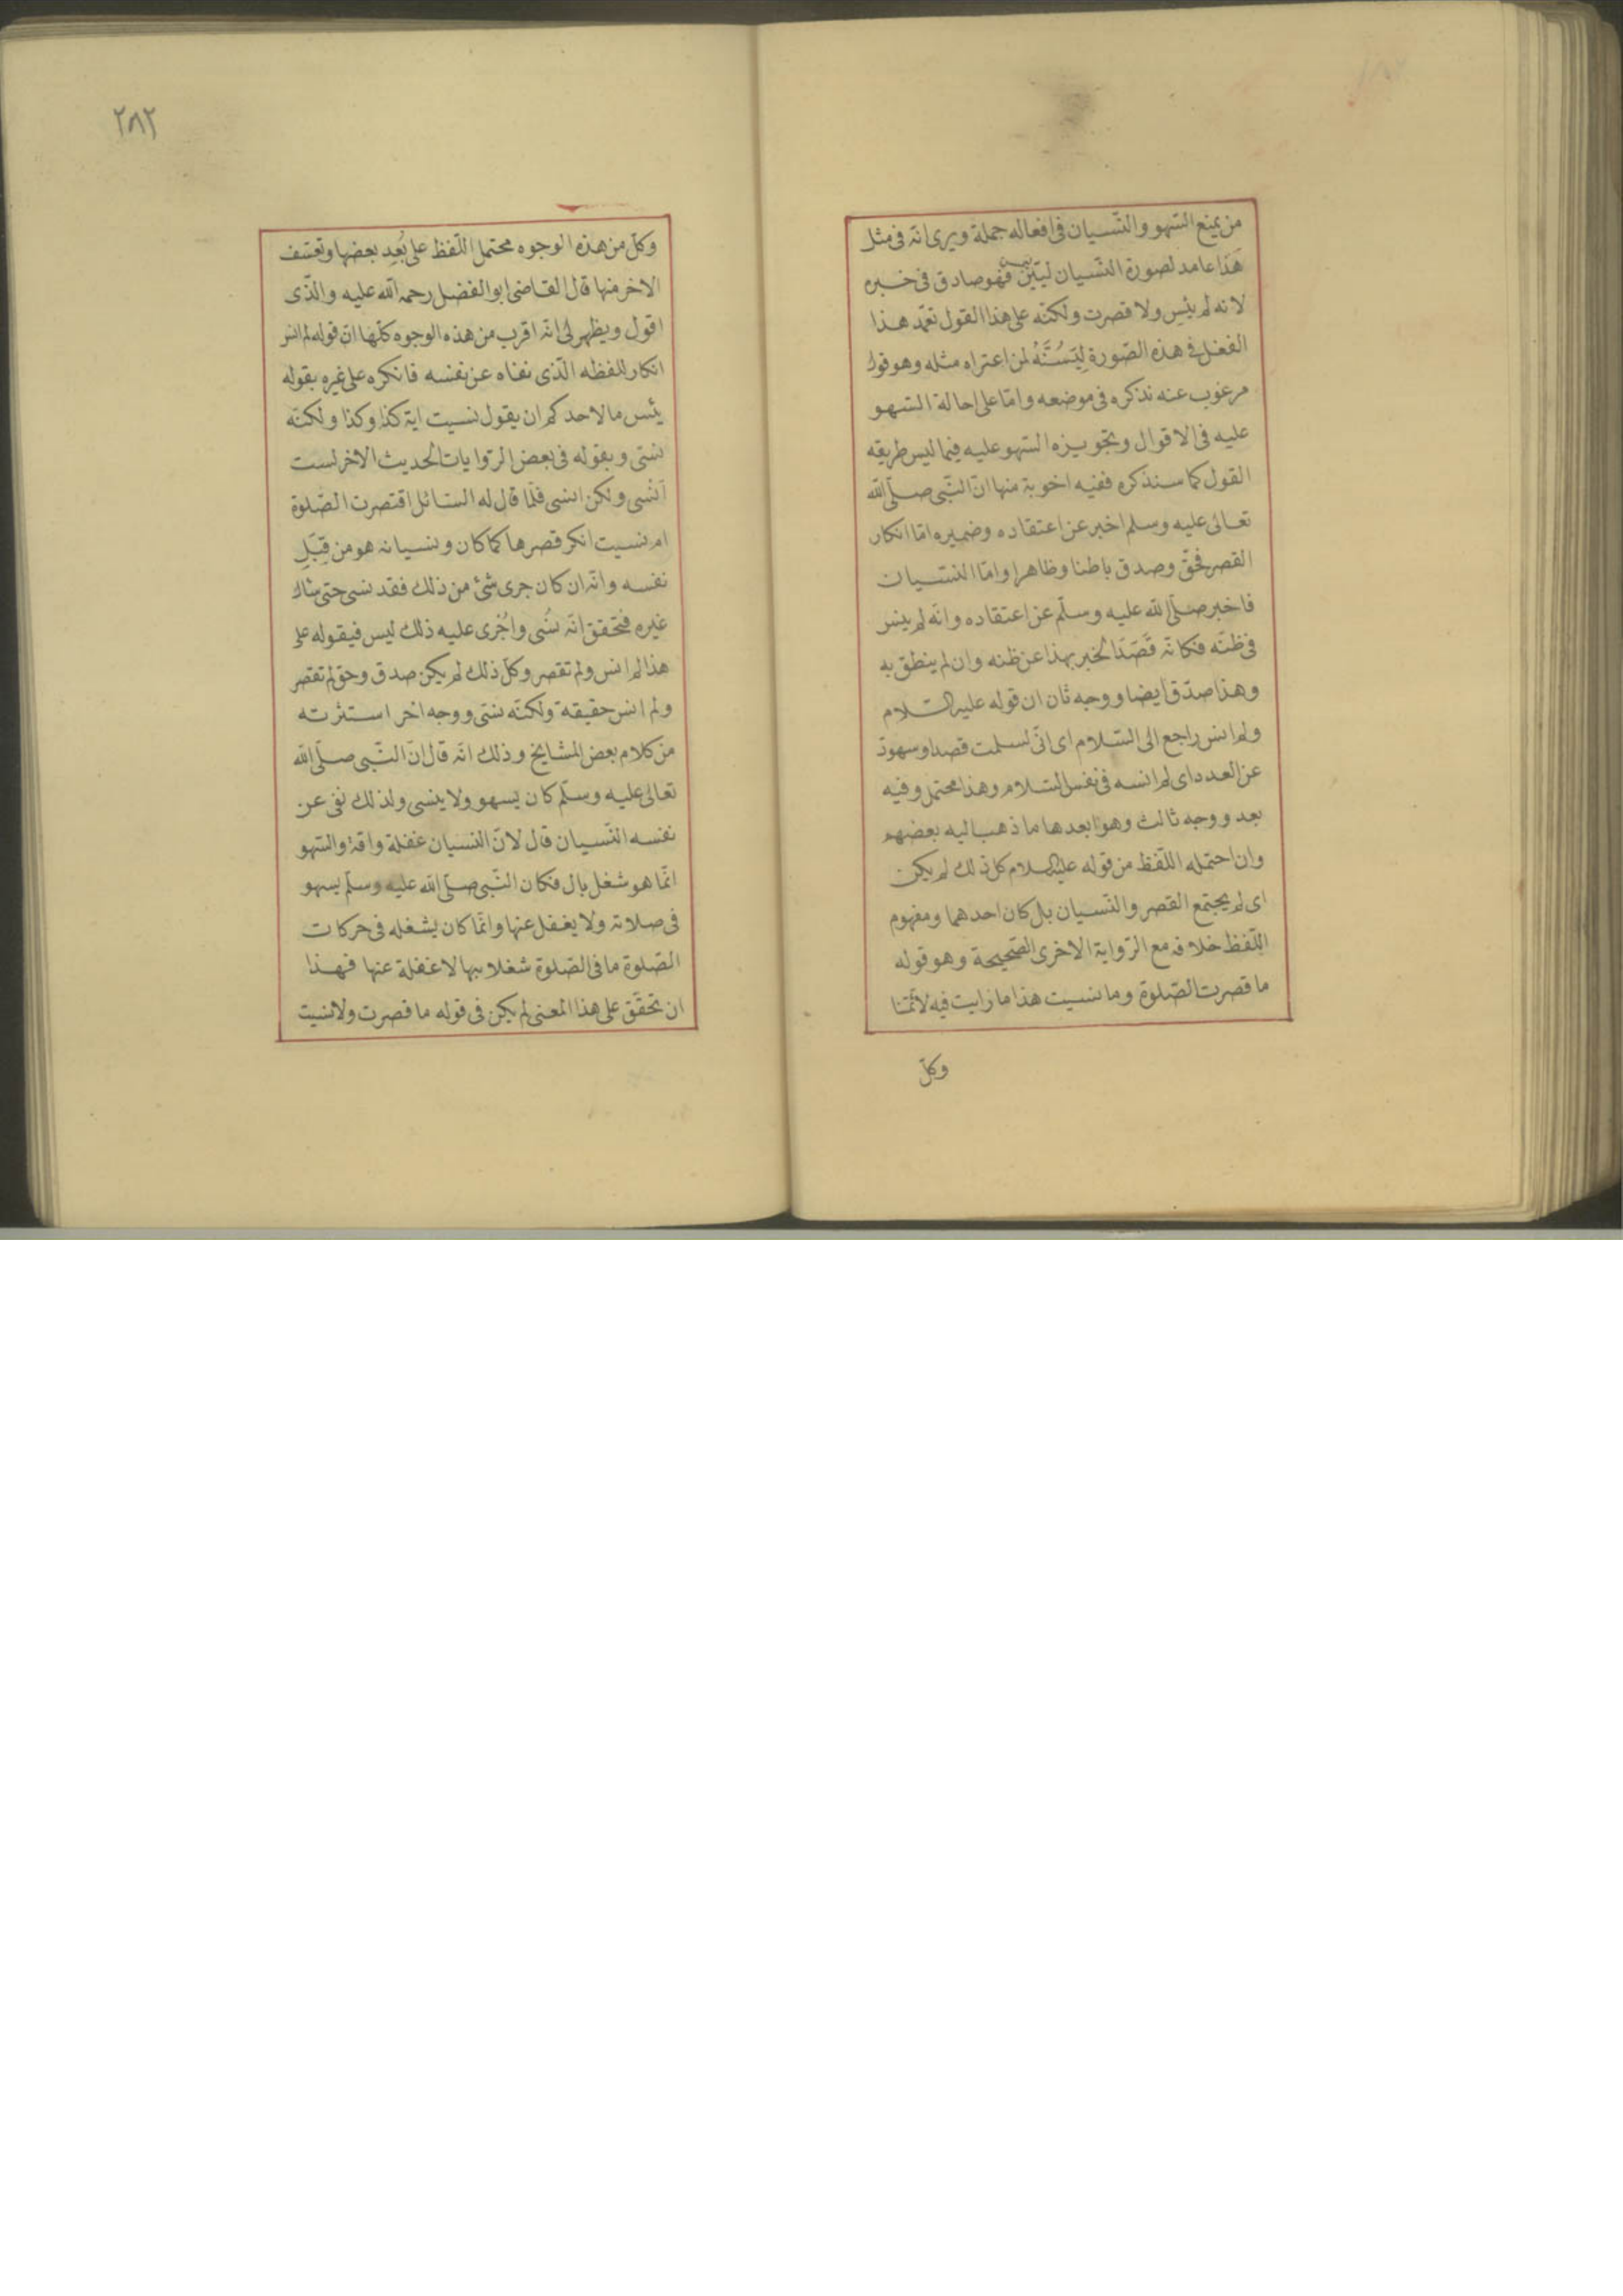 من يمنع السّهو والنّسيان فى افعاله جملة ويرى انّه فى مثل
هَذا عامد لصورة النّسيان ليَبيّن فهو صادق فى خبره
لانه لم ينس ولا قصرت ولكنّه على هذا القول تعمّد هذا
الفعل فى هذه الصّورة لِيَسُنَّهُ لمن اعتراه مثله وهو قول
مرغوب عنه نذكره فى موضعه وامّا على احالة السّهو
عليه فى الاقوال وتجويزه السّهو عليه فيما ليس طريقه
القول كما سنذكره ففيه اجوبة منها انّ النّبى صلّى الله
تعالى عليه وسلم اخبر عن اعتقاده وضميره امّا انكار
القصر فحَقّ وصدق باطنا وظاهرا وامّا النّسيان
فاخبر صلّى الله عليه وسلّم عن اعتقاده وانّه لم ينس
فى ظنّه فكانّه قَصَدَ الخبر بهذا عن ظنه وان لم ينطق به
وهذا صدق ايضا ووجه ثان ان قوله عليه السّلام
ولم انس راجع الى السّلام اى انّى سلمت قصدا وسهوت
عن العدد اى لم انسه فى نفس السّلام وهذا محتمل وفيه
بعد ووجه ثالث وهو ابعدها ما ذهب اليه بعضهم
وان احتمله اللّفظ من قوله عليه السلام كل ذلك لم يكن
اى لم يجتمع القصر والنّسيان بل كان احدهما ومفهوم
اللّفظ خلافه مع الرّواية الاخرى الصّحيحة وهو قوله
ما قصرت الصّلوة وما نسيت هذا ما رايت فيه لائمّتنا
وكلّ
٢٨٢
وكلّ من هذه الوجوه محتمل اللّفظ على بُعدِ بعضها وتعسّف
الاخر منها قال القاضى ابو الفضل رحمه الله عليه والّذى
اقول ويظهر لى انّه اقرب من هذه الوجوه كلّها انّ قوله لم انس
انكار للفظه الّذى نفاه عن نفسه فانكره على غيره بقوله
بئس ما لاحدكم ان يقول نسيت اية كذا وكذا ولكنّه
نسّى وبقوله فى بعض الرّوايات الحديث الاخر لست
اَنْسى ولكن انسى فلمّا قال له السّائل اقتصرت الصّلوة
ام نسيت انكر قصرها كما كان ونسيانه هو من قِبَلِ
نفسه وانّه ان كان جرى شئ من ذلك فقد نسى حتى سأل
غيره فتحقق انّه نسُى واُجْرى عليه ذلك ليس فيقوله على
هذا لم انس ولم تقصر وكلّ ذلك لم يكن صدق وحق لم تقصر
ولم انس حقيقة ولكنّه نسّى ووجه اخر استثرته
من كلام بعض المشايخ وذلك انّه قال انّ النّبى صلّى الله
تعالى عليه وسلّم كان يسهو ولا ينسى ولذلك نفى عن
نفسه النّسيان قال لانّ النسيان غفلة وافة والسّهو
انّما هو شغل بال فكان النّبى صلّى الله عليه وسلّم يسهو
فى صلاته ولا يغفل عنها وانّما كان يشغله فى حركات
الصّلوة ما فى الصّلوة شغلا بها لا غفلة عنها فهذا
ان تحقّق على هذا المعنى لم يكن فى قوله ما قصرت ولا نسيت